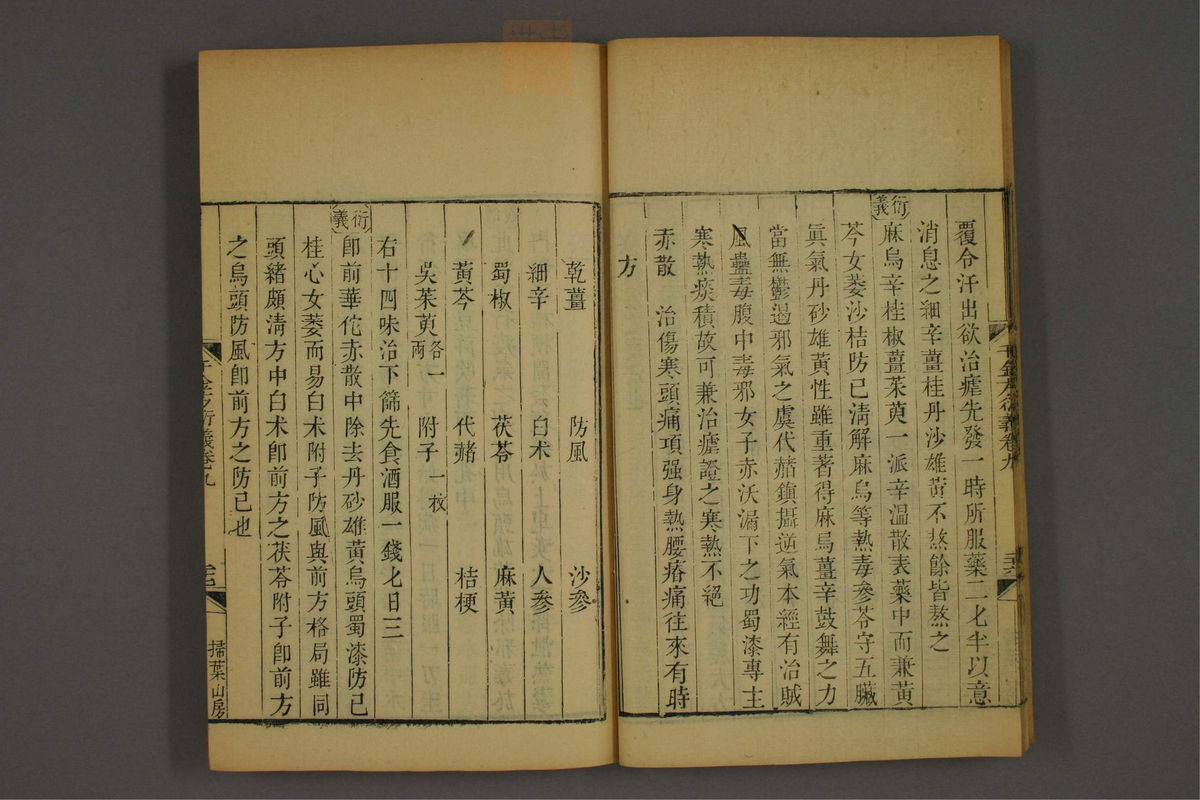 覆令汗出欲治瘧先發一時所服藥二匕半以意
消息之細辛薑桂丹沙雄黃不熬餘皆熬之
衍義
麻烏辛桂椒薑茱萸一派辛溫散表藥中而兼黃
芩女萎沙桔防已淸解麻烏等熱毒參苓守五臟
眞氣丹砂雄黃性雖重著得麻烏薑辛鼓舞之力
當無鬱遏邪氣之虞代赭鎭攝逆氣本經有治賊
風蠱毒腹中毒邪女子赤沃漏下之功蜀漆專主
寒熱痰積故可兼治瘧證之寒熱不絕
赤散 治傷寒頭痛項强身熱腰瘠痛往來有時
方
乾薑 防風 沙參
細辛 白朮 人參
蜀椒 茯苓 麻黃
黃芩 代赭 桔梗
吳茱萸各一兩 附子一枚
右十四味治下篩先食酒服一錢匕日三
衍義
卽前華佗赤散中除去丹砂雄黃烏頭蜀漆防已
桂心女萎而易白朮附子防風與前方格局雖同
頭緒頗淸方中白朮卽前方之茯苓附子卽前方
之烏頭防風卽前方之防已也
掃葉山房